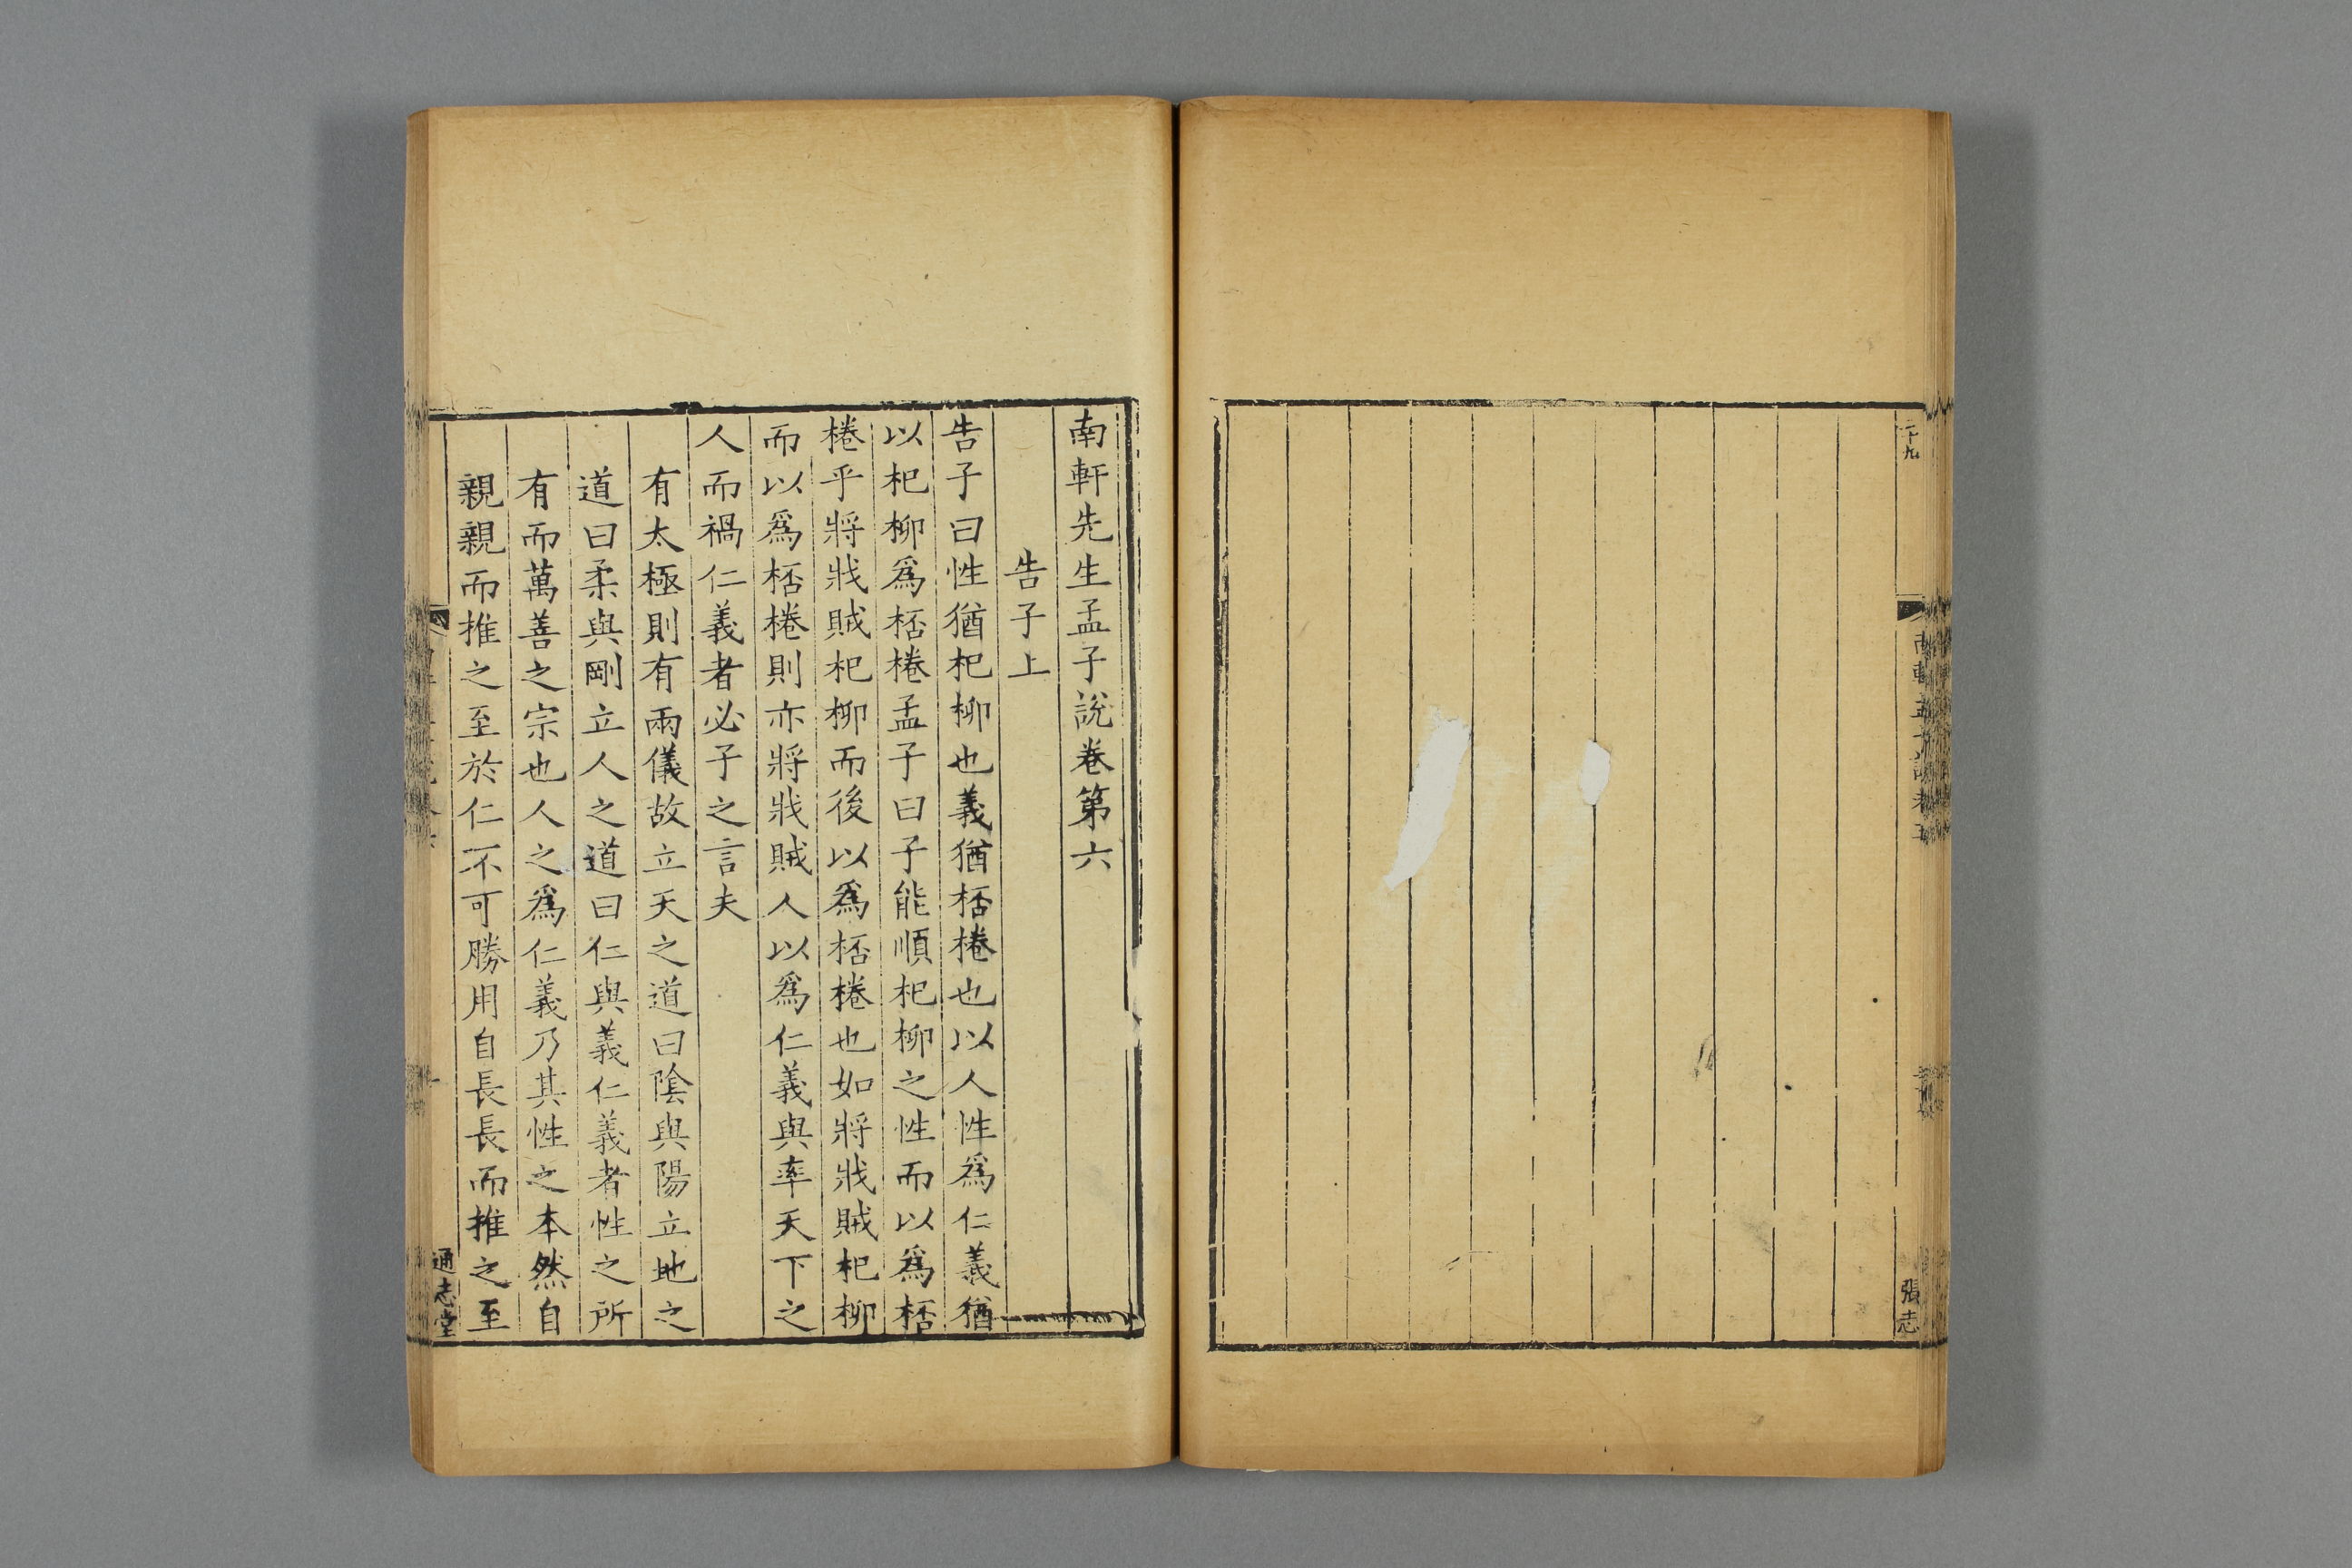 南軒孟子說卷五
張志
南軒先生孟子說卷第六
告子上
告子曰性猶杞柳也義猶桮棬也以人性爲仁義猶
以杞柳爲桮棬孟子曰子能順杞柳之性而以爲桮
棬乎將戕賊杞柳而後以爲桮棬也如將戕賊杞柳
而以爲桮棬則亦將戕賊人以爲仁義與率天下之
人而禍仁義者必子之言夫
有太極則有兩儀故立天之道曰陰與陽立地之
道曰柔與剛立人之道曰仁與義仁義者性之所
有而萬善之宗也人之爲仁義乃其性之本然自
親親而推之至於仁不可勝用自長長而推之至
通志堂